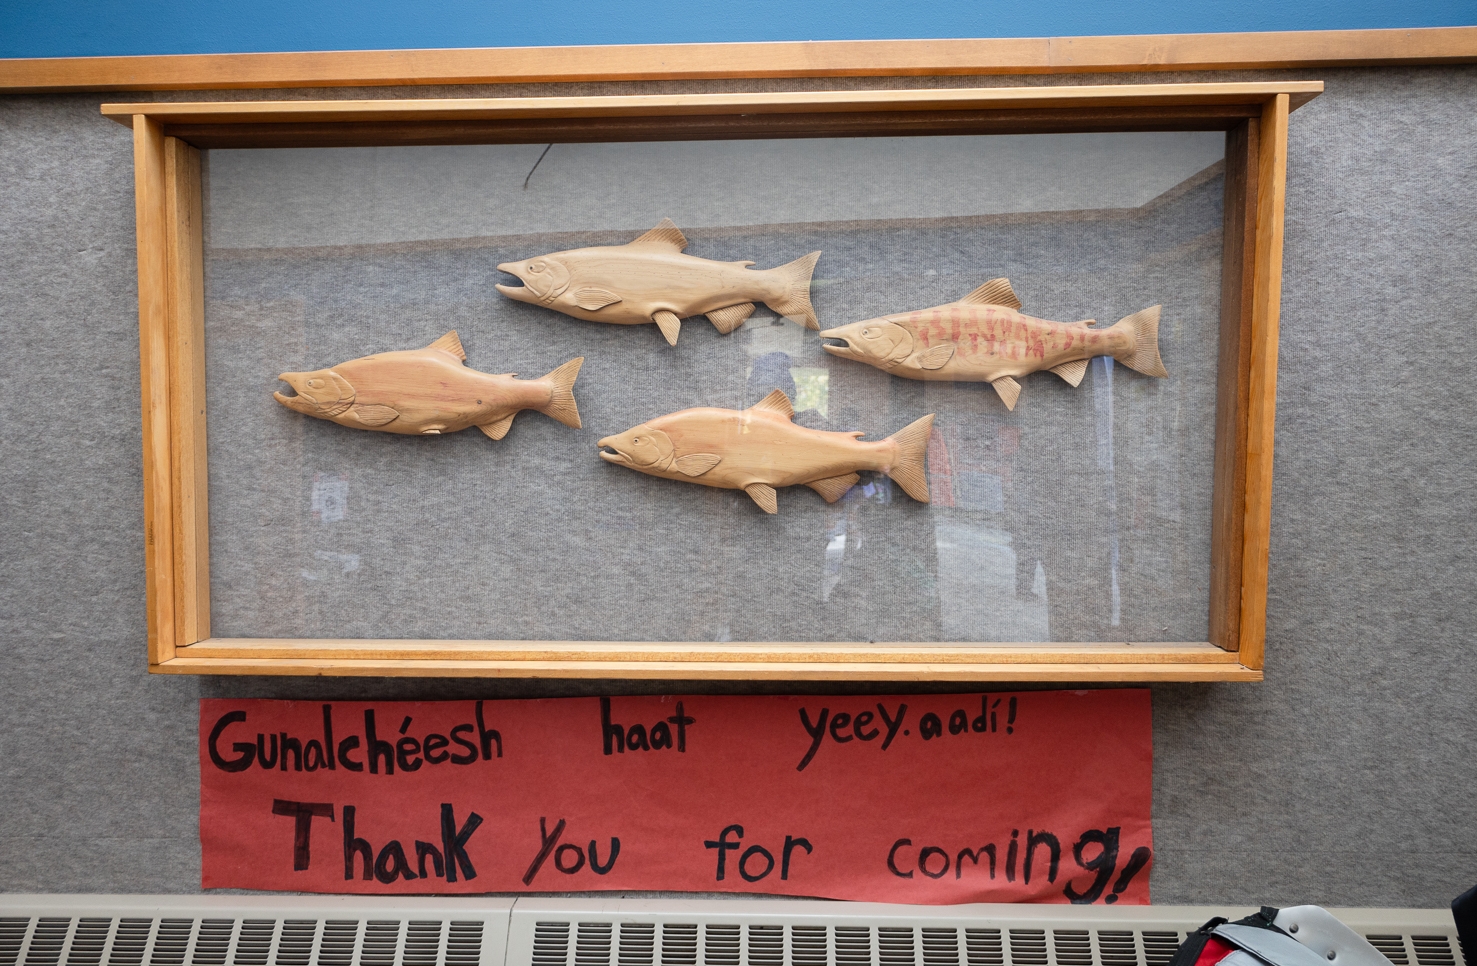 Gunalchéesh haat yeey.aadí!
Thank you for coming!